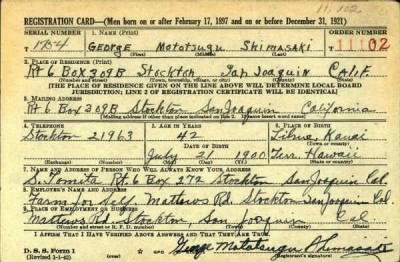 11,102
REGISTRATION CARD—(Men born on or after February 17, 1897 and on or before December 31, 1921)
SERIAL NUMBER 1. NAME (Print) ORDER NUMBER
1754 GEORGE Mototsugu Shimasaki 11102
(First) (Middle) (Last)
2. PLACE OF RESIDENCE (Print)
Rt 6 Box 309B Stockton San Joaquin CALIF.
(Number and street) (Town, township, village, or city) (County) (State)
[THE PLACE OF RESIDENCE GIVEN ON THE LINE ABOVE WILL DETERMINE LOCAL BOARD
JURISDICTION; LINE 2 OF REGISTRATION CERTIFICATE WILL BE IDENTICAL]
3. MAILING ADDRESS
Rt 6 Box 309B Stockton San Joaquin California
[Mailing address if other than place indicated on line 2. If same insert word same]
4. TELEPHONE 5. AGE IN YEARS 6. PLACE OF BIRTH
Stockton 21963 42 Lihue, Kauai
DATE OF BIRTH (Town or county)
July 21 1900 Terr. Hawaii
(Exchange) (Number) (Mo.) (Day) (Yr.) (State or country)
7. NAME AND ADDRESS OF PERSON WHO WILL ALWAYS KNOW YOUR ADDRESS
S. Tomita Rt. 6 Box 272 Stockton San Joaquin Cal.
8. EMPLOYER'S NAME AND ADDRESS
Farm for Self, Mattews Rd. Stockton San Joaquin Cal.
9. PLACE OF EMPLOYMENT OR BUSINESS
Mattews Rd. Stockton, San Joaquin Cal
(Number and street or R. F. D. number) (Town) (County) (State)
I AFFIRM THAT I HAVE VERIFIED ABOVE ANSWERS AND THAT THEY ARE TRUE.
George Mototsugu Shimasaki
D. S. S. Form 1
(Revised 1-1-42) (over) (Registrant's signature)